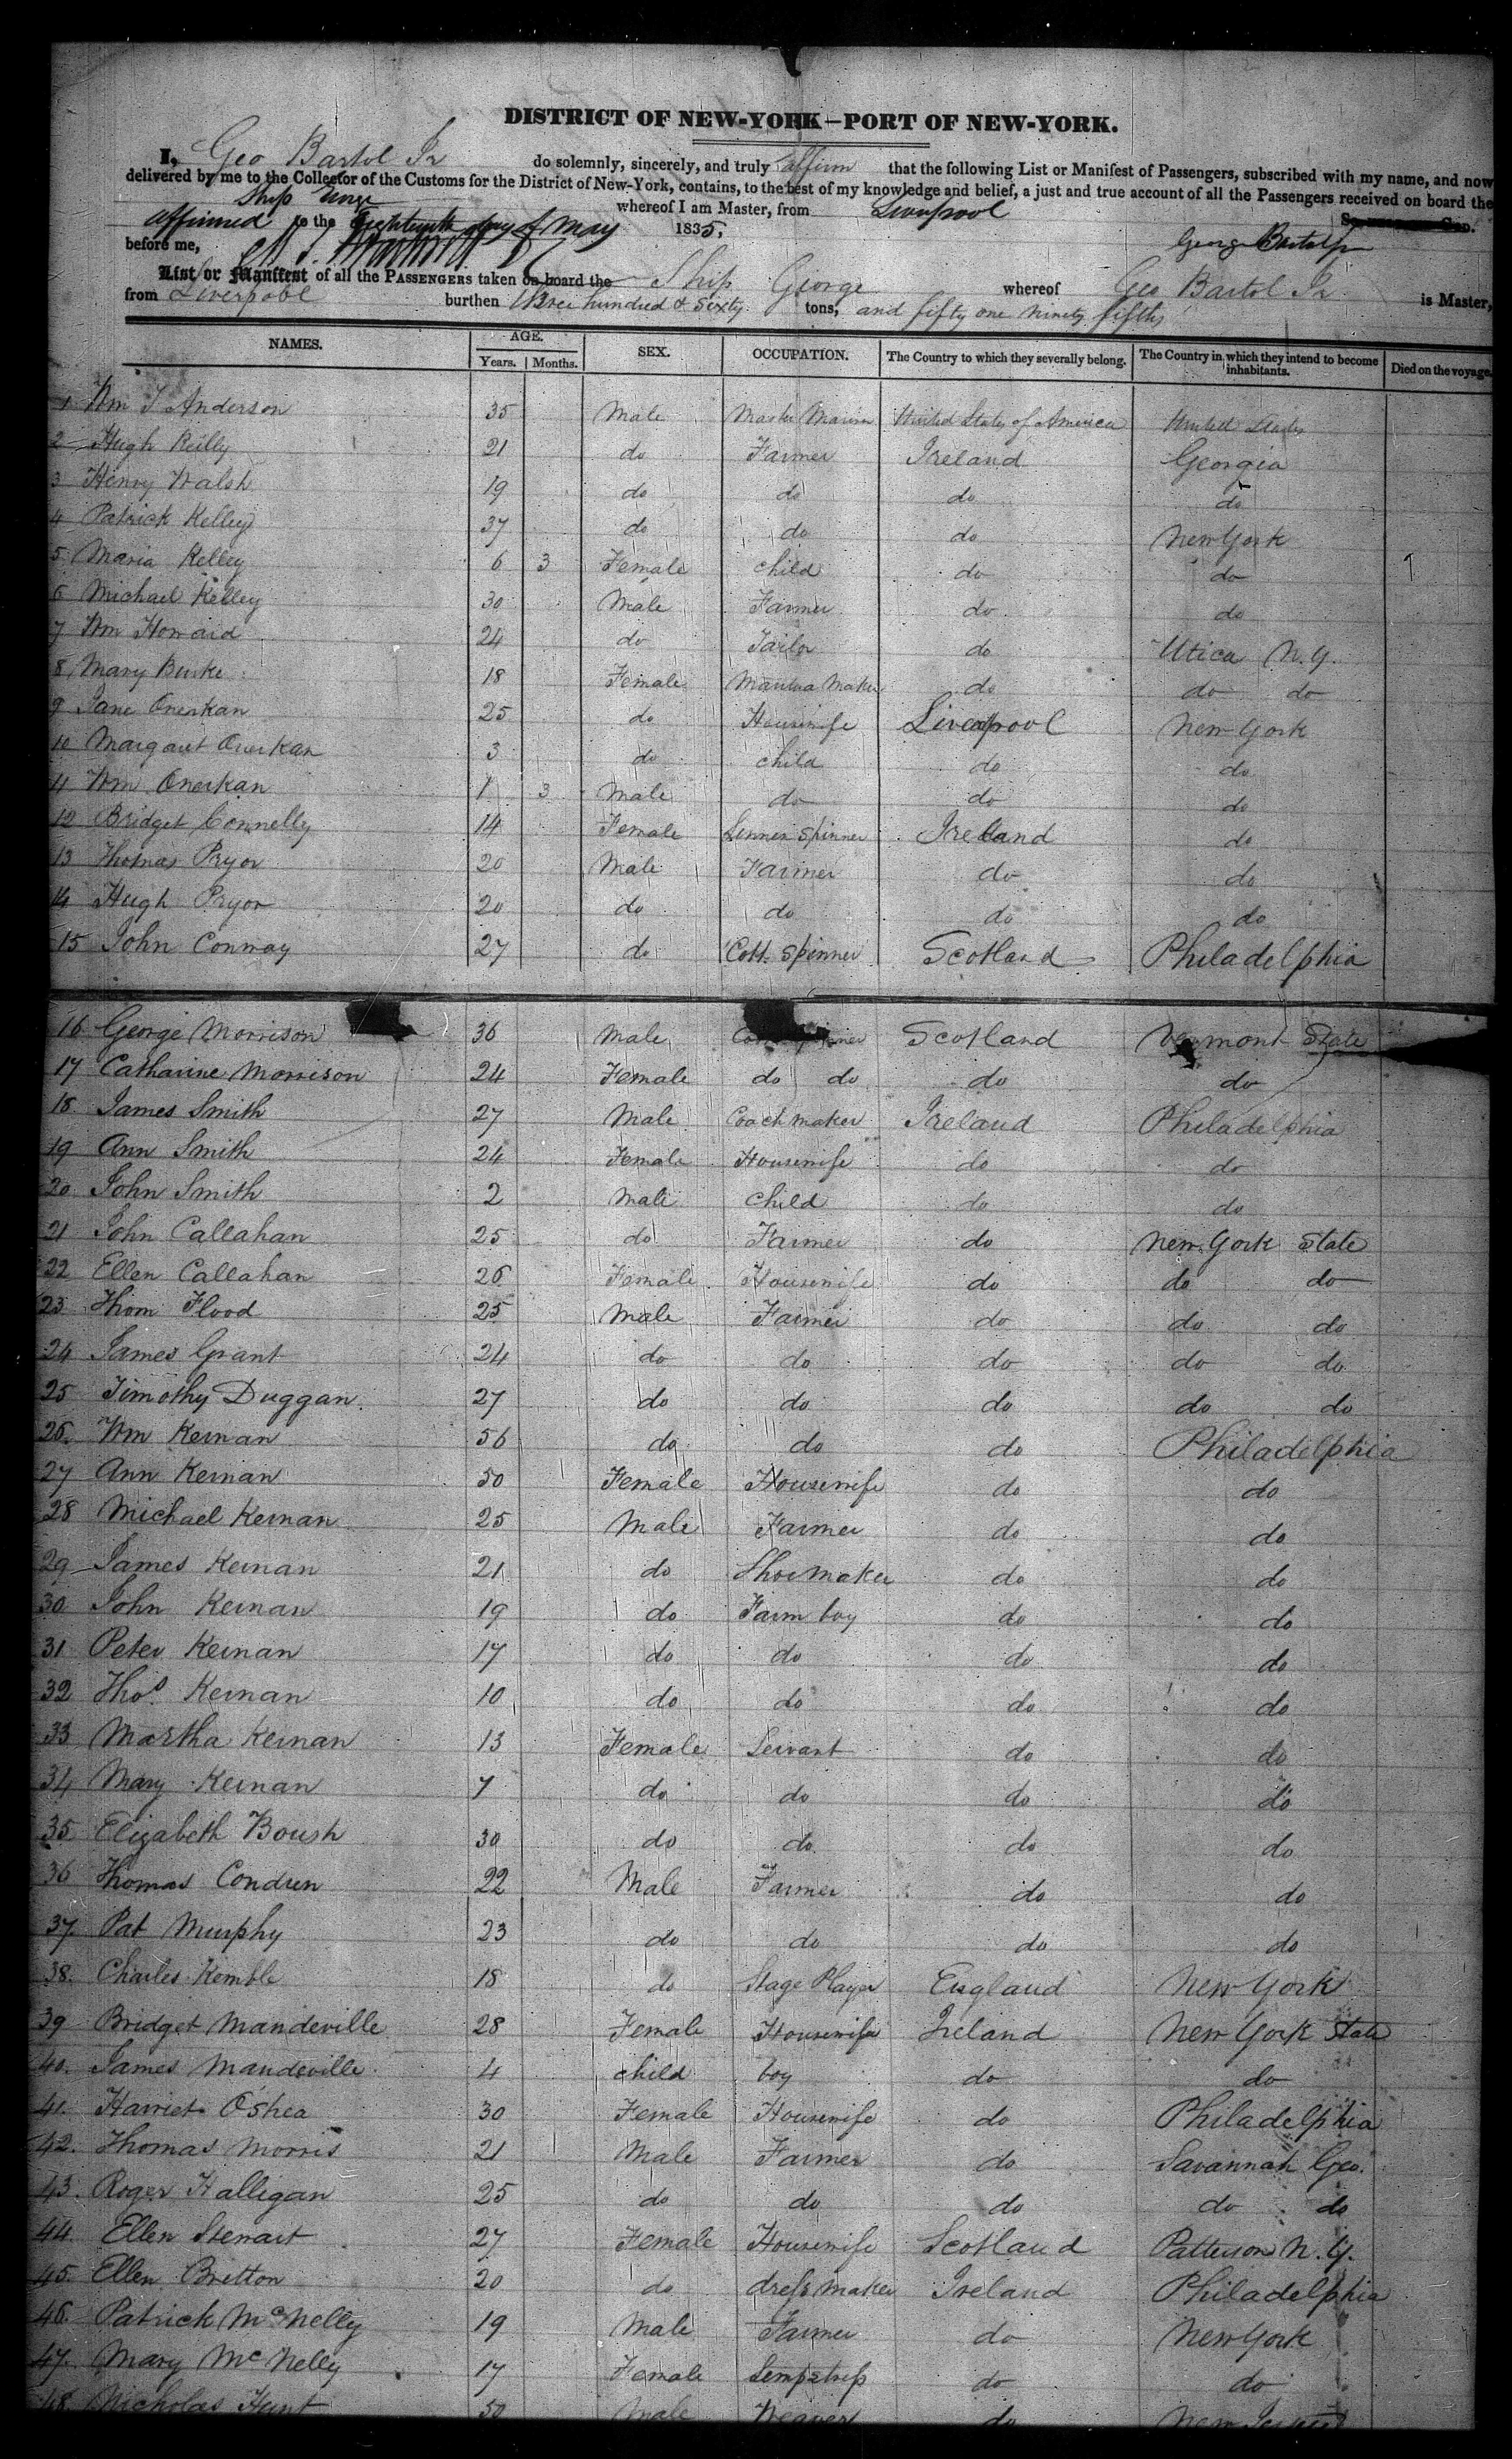 DISTRICT OF NEW-YORK—PORT OF NEW-YORK.
I, Geo Bartol Jr do solemnly, sincerely, and truly affirm that the following List or Manifest of Passengers, subscribed with my name, and now
delivered by me to the Collector of the Customs for the District of New-York, contains, to the best of my knowledge and belief, a just and true account of all the Passengers received on board the
Ship whereof I am Master, from Liverpool
affirmed to the Eighteenth day of May 1835,
before me, George Bartol Jr
List or Manifest of all the PASSENGERS taken on board the Ship George whereof Geo Bartol Jr is Master,
from Liverpool burthen three hundred & sixty tons, and fifty one ninety fifths
NAMES. AGE. SEX. OCCUPATION. The Country to which they severally belong. The Country in which they intend to become inhabitants. Died on the voyage.
Years. Months.
1 Wm J Anderson 35 Male Master Marine United States of America United States
2 Hugh Reilly 21 do Farmer Ireland Georgia
3 Henry Walsh 19 do do do do
4 Patrick Kelley 37 do do do New York
5 Maria Kelley 6 3 Female child do do 1
6 Michael Kelley 30 Male Farmer do do
7 Wm Howard 24 do Tailor do Utica N.Y.
8 Mary Burke 18 Female Mantua Maker do do do
9 Jane Onerkan 25 do Housewife Liverpool New York
10 Margaret Onerkan 3 do child do do
11 Wm Onerkan 1 3 Male do do do
12 Bridget Connelly 14 Female Linnen Spinner Ireland do
13 Thomas Pryor 20 Male Farmer do do
14 Hugh Pryor 20 do do do do
15 John Conway 27 do Cott. Spinner Scotland Philadelphia
16 George Morrison 36 Male Scotland Vermont State
17 Catharine Morrison 24 Female do do do do
18. James Smith 27 Male Coach maker Ireland Philadelphia
19 Ann Smith 24 Female Housewife do do
20 John Smith 2 Male child do do
21 John Callahan 25 do Farmer do New York State
22 Ellen Callahan 26 Female Housewife do do do
23 Thom Flood 25 Male Farmer do do do
24 James Grant 24 do do do do do
25 Timothy Duggan 27 do do do do do
26. Wm Kernan 56 do do do Philadelphia
27 Ann Kernan 50 Female Housewife do do
28 Michael Kernan 25 Male Farmer do do
29 James Kernan 21 do Shoemaker do do
30 John Kernan 19 do Farm boy do do
31 Peter Kernan 17 do do do do
32 Thos. Kernan 10 do do do do
33 Martha Kernan 13 Female Servant do do
34 Mary Kernan 7 do do do do
35 Elizabeth Boush 30 do do do do
36 Thomas Condren 22 Male Farmer do do
37. Pat Murphy 23 do do do do
38. Charles Kemble 18 do Stage Player England New York
39 Bridget Mandeville 28 Female Housewife Ireland New York State
40. James Mandeville 4 child boy do do
41. Harriet O'Shea 30 Female Housewife do Philadelphia
42. Thomas Morris 21 Male Farmer do Savannah Geo.
43. Roger Halligan 25 do do do do do
44. Ellen Stewart 27 Female Housewife Scotland Patterson N.Y.
45. Ellen Britton 20 do dress maker Ireland Philadelphia
46. Patrick McNelly 19 Male Farmer do New York
47. Mary McNelly 17 Female Sempstress do do
48. Nicholas Hunt 50 Male Weaver do New Jersey